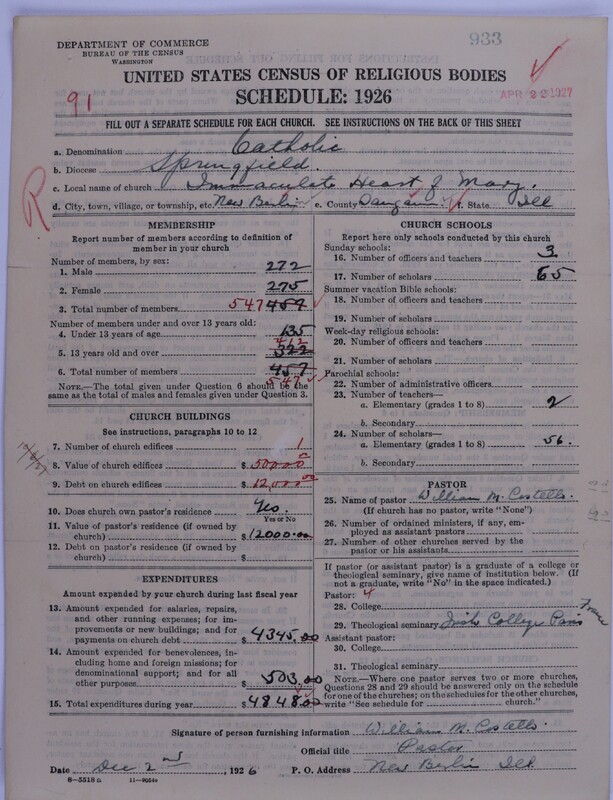 DEPARTMENT OF COMMERCE
BUREAU OF THE CENSUS
WASHINGTON
933
UNITED STATES CENSUS OF RELIGIOUS BODIES
SCHEDULE: 1926
91
APR 22 1927
FILL OUT A SEPARATE SCHEDULE FOR EACH CHURCH. SEE INSTRUCTIONS ON THE BACK OF THIS SHEET
a. Denomination Catholic
b. Diocese Springfield.
c. Local name of church Immaculate Heart of Mary.
d. City, town, village, or township, etc. New Berlin e. County Sangamon f. State Ill
R
MEMBERSHIP
Report number of members according to definition of member in your church
Number of members, by sex:
1. Male 272
2. Female 275
3. Total number of members 547 457
Number of members under and over 13 years old:
4. Under 13 years of age 135
412
5. 13 years old and over 322
6. Total number of members 457
547
NOTE.—The total given under Question 6 should be the same as the total of males and females given under Question 3.
CHURCH BUILDINGS
See instructions, paragraphs 10 to 12
7. Number of church edifices 1
8. Value of church edifices $ 50000.00
9. Debt on church edifices $ 12,000.00
10. Does church own pastor's residence? Yes.
Yes or No
11. Value of pastor's residence (if owned by church) $ 12000.00
12. Debt on pastor's residence (if owned by church) $
EXPENDITURES
Amount expended by your church during last fiscal year
13. Amount expended for salaries, repairs, and other running expenses; for improvements or new buildings; and for payments on church debt $ 4345.00
14. Amount expended for benevolences, including home and foreign missions; for denominational support; and for all other purposes $ 503.00
15. Total expenditures during year $ 4848.00
CHURCH SCHOOLS
Report here only schools conducted by this church
Sunday schools:
16. Number of officers and teachers 3
17. Number of scholars 65
Summer vacation Bible schools:
18. Number of officers and teachers
19. Number of scholars
Week-day religious schools:
20. Number of officers and teachers
21. Number of scholars
Parochial schools:
22. Number of administrative officers
23. Number of teachers—
a. Elementary (grades 1 to 8) 2
b. Secondary
24. Number of scholars—
a. Elementary (grades 1 to 8) 56.
b. Secondary
PASTOR
25. Name of pastor William M. Costello.
(If church has no pastor, write "None")
26. Number of ordained ministers, if any, employed as assistant pastors
27. Number of other churches served by the pastor or his assistants
If pastor (or assistant pastor) is a graduate of a college or theological seminary, give name of institution below. (If not a graduate, write "No" in the space indicated.)
Pastor:
28. College
29. Theological seminary Irish College Paris France
Assistant pastor:
30. College
31. Theological seminary
NOTE.—Where one pastor serves two or more churches, Questions 28 and 29 should be answered only on the schedule for one of the churches; on the schedules for the other churches, write "See schedule for church."
Signature of person furnishing information William M. Costello.
Official title Pastor
Date Dec 2nd, 1926 P. O. Address New Berlin Ill.
8—5518 a